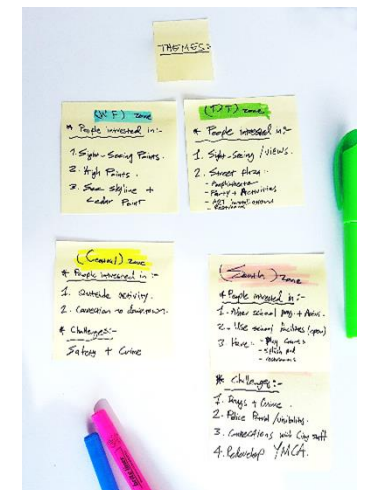 THEMES:
(WF) zone
* People intrested in:-
1. Sight-Seeing Points.
2. High Points.
3. See Skyline +
Cedar Point
(DT) zone
* People intresed in:-
1. Sight-Seeing / views.
2. Street plaza.
- Party + Activities
- ART installations
(Central) zone
* People intresred in :-
1. Outside activity.
2. Connection to downtown.
* Challenges:-
Safety + Crime
(South) zone
* People intrested in :-
1. After school prog. + Activ.
2. Use school facilities (open)
3. Have :- - play courts
- splash pad
- restrooms
* Challenges:-
1. Drugs + Crime.
2. Police Patrol / Visibility.
3. Connections with City staff
4. Redevelop YMCA.